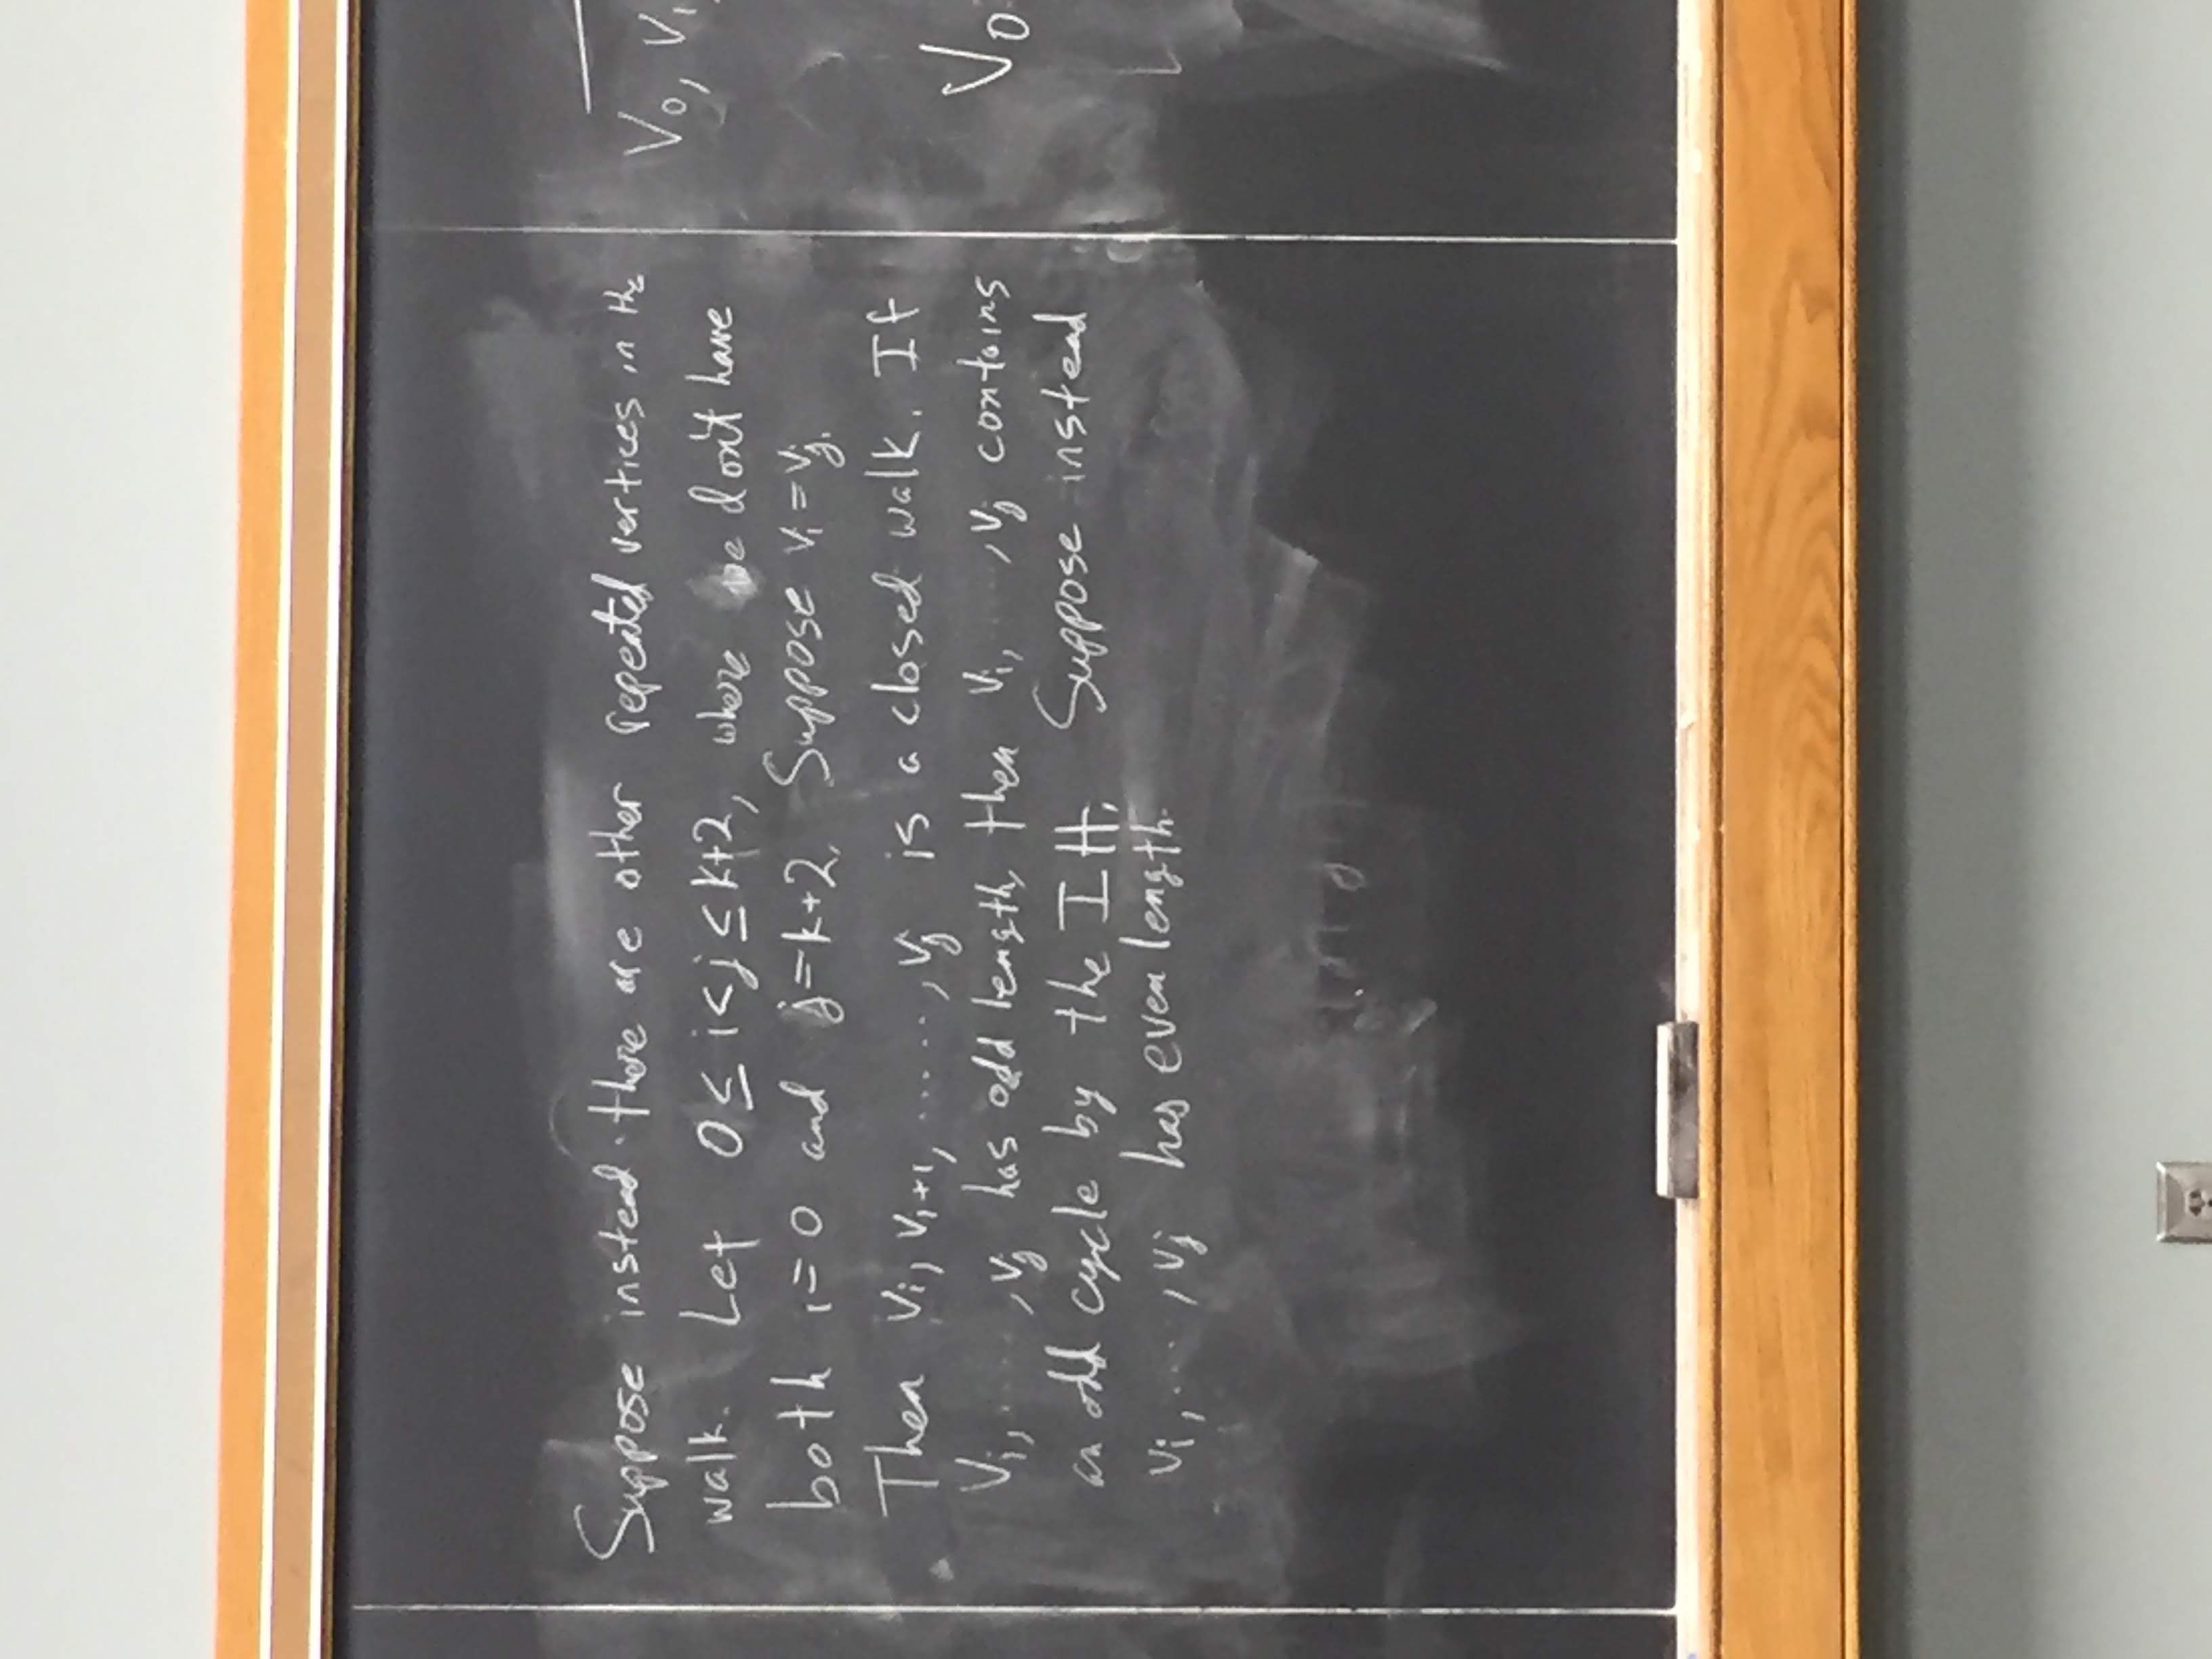 Suppose instead there are other repeated vertices in the
walk. Let 0 ≤ i < j ≤ k+2, where we don't have
both i=0 and j=k+2. Suppose vi = vj.
Then vi, vi+1, ......, vj is a closed walk. If
vi, ......, vj has odd length, then vi, ....., vj contains
an odd cycle by the IH. Suppose instead
vi, ...., vj has even length.
V0, V1
V0